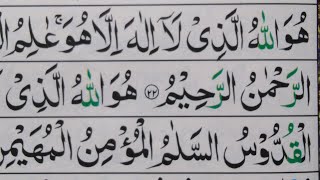 هُوَاللّٰهُ الَّذِىْ لَاۤ اِلٰهَ اِلَّا هُوَ ۚ عٰلِمُ
الرَّحْمٰنُ الرَّحِيْمُ ﴿۲۲﴾ هُوَاللّٰهُ الَّذِىْ
الْقُدُّوْسُ السَّلٰمُ الْمُؤْمِنُ الْمُهَيْمِنُ